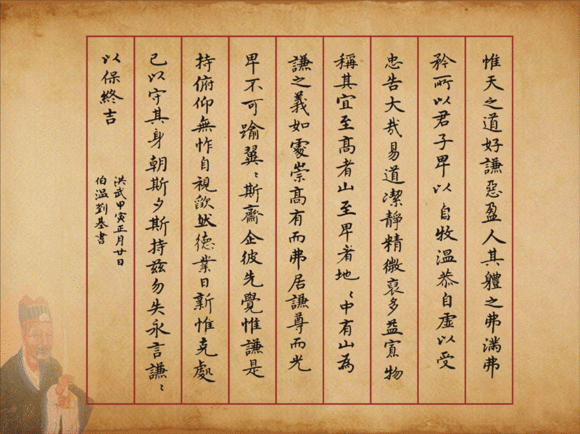 惟天之道好謙惡盈人其軆之弗滿弗
矜所以君子卑以自牧溫恭自虛以受
忠告大哉易道潔靜精微裒多益寡物
稱其宜至高者山至卑者地〻中有山為
謙之義如處崇高有而弗居謙尊而光
卑不可踰翼〻斯齋企彼先覺惟謙是
持俯仰無怍自視欿然德業日新惟克處
己以守其身朝斯夕斯持玆勿失永言謙〻
以保終吉
洪武甲寅正月廿日
伯溫劉基書